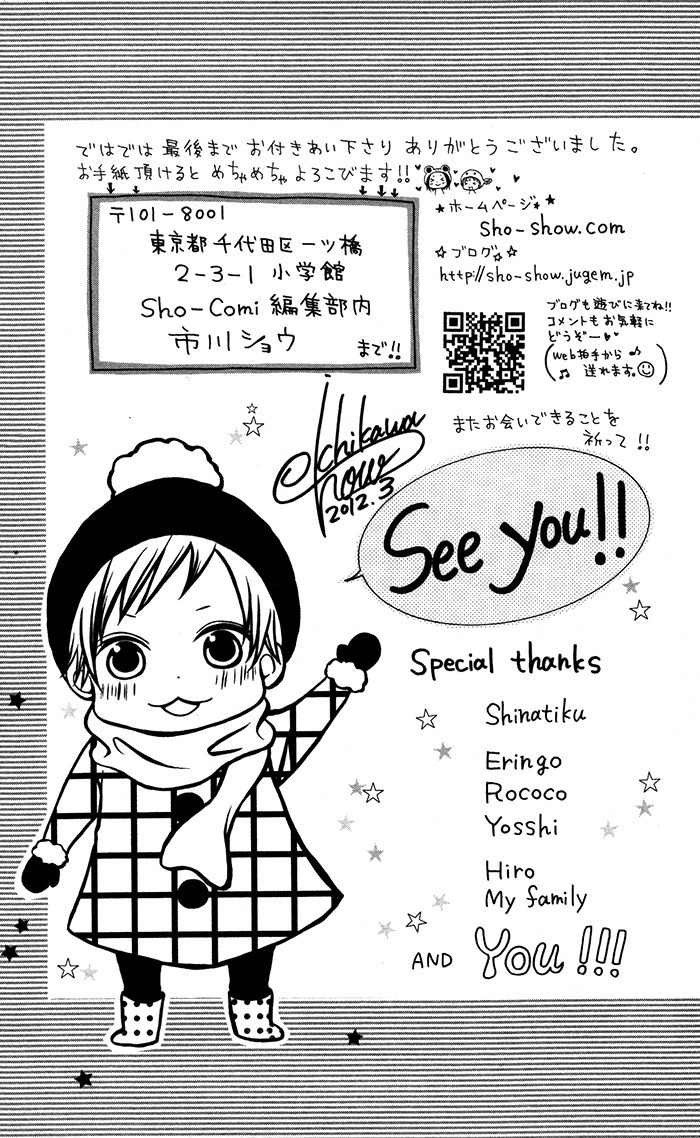 ではでは 最後まで お付きあい下さり ありがとうございました。
お手紙頂けると めちゃめちゃ よろこびます!!
〒101-8001
東京都千代田区一ツ橋
2-3-1 小学館
Sho-Comi 編集部内
市川ショウ まで!!
★ホームページ★
Sho-show.com
☆ブログ☆
http://sho-show.jugem.jp
ブログも遊びに来てね!!
コメントもお気軽に
どうぞー♥♥
(web拍手から♪
♫送れます。☺)
またお会いできることを
祈って!!
Ichikawa
Show
2012.3
See you!!
Special thanks
Shinatiku
Eringo
Rococo
Yosshi
Hiro
My family
AND You!!!